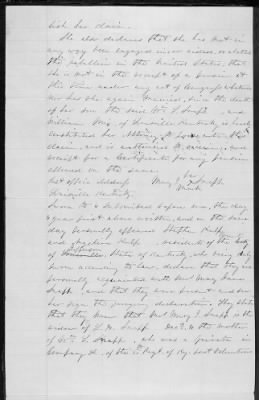 lish her claim.
She also declares that she has not in
any way been engaged in or aided or abetted
the rebellion in the United States, that
she is not in the receipt of a pension at
this time under any act of Congress
nor has she again married since the death
of her son the said Wm T. Snapp, and
William of Louisville Kentucky, is hereby
constituted her Attorney to prosecute this
claim, and is authorized to receive, and
receipt for a Certificate for any pension
allowed on the same.
Post office address Mary J. her x mark Snapp
Louisville Kentucky
Sworn to & subscribed before me, the day
& year first above written, and on the same
day personally appeared Stephen
and residents of the County
Jefferson State of Kentucky, who being duly
sworn according to law, declare that they are
personally acquainted with Mrs Mary J.
Snapp, and that they were present and saw
her sign the foregoing declaration. They state
that they know that Mrs Mary J. Snapp is the
widow of Snapp Decd, & the mother
of Wm T. Snapp, who was a private in
Company of the Regt of Ky. Volunteers